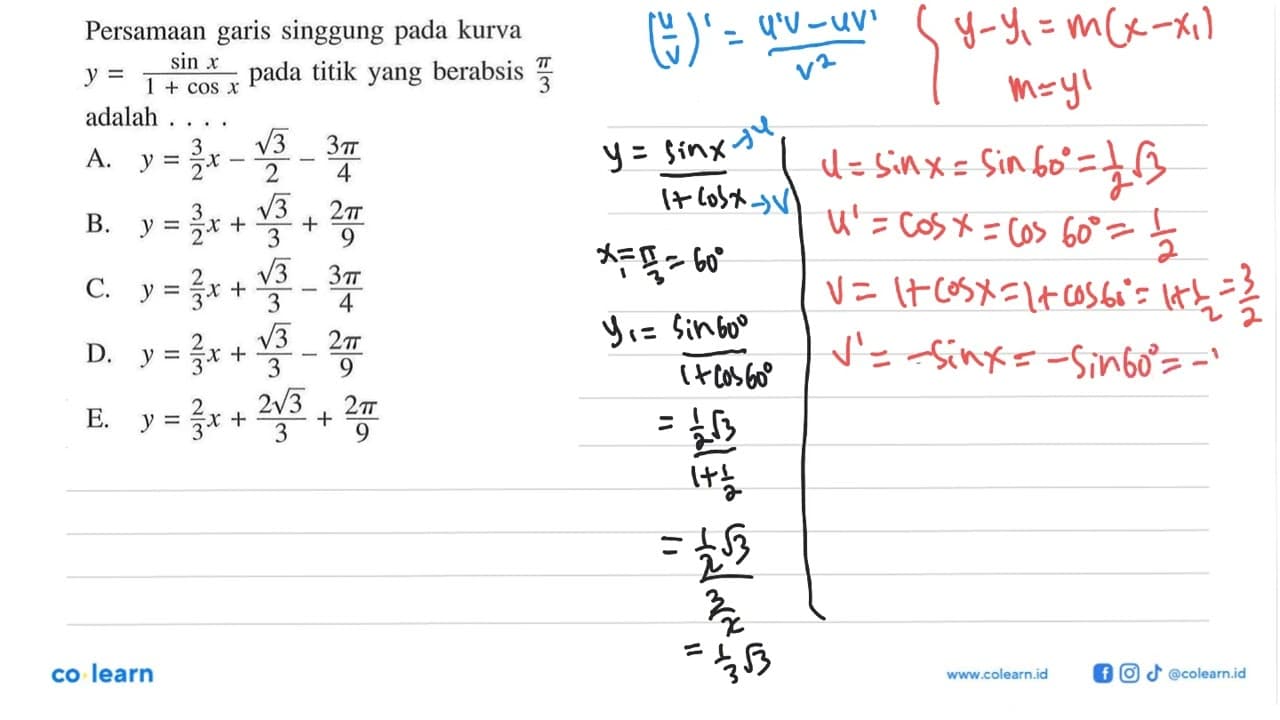 Persamaan garis singgung pada kurva
y = sin x / (1 + cos x) pada titik yang berabsis π/3
adalah . . . .
A. y = 3/2 x − √3/2 − 3π/4
B. y = 3/2 x + √3/3 + 2π/9
C. y = 2/3 x + √3/3 − 3π/4
D. y = 2/3 x + √3/3 − 2π/9
E. y = 2/3 x + 2√3/3 + 2π/9
(u/v)' = u'v − uv' / v²
y − y₁ = m(x − x₁)
m = y'
y = sin x → u / 1 + cos x → v
x₁ = π/3 = 60°
y₁ = sin 60° / 1 + cos 60°
= 1/2 √3 / 1 + 1/2
= 1/2 √3 / 3/2
= 1/3 √3
u = sin x = sin 60° = 1/2 √3
u' = cos x = cos 60° = 1/2
v = 1 + cos x = 1 + cos 60° = 1 + 1/2 = 3/2
v' = − sin x = − sin 60° = −'
co learn
www.colearn.id
@colearn.id